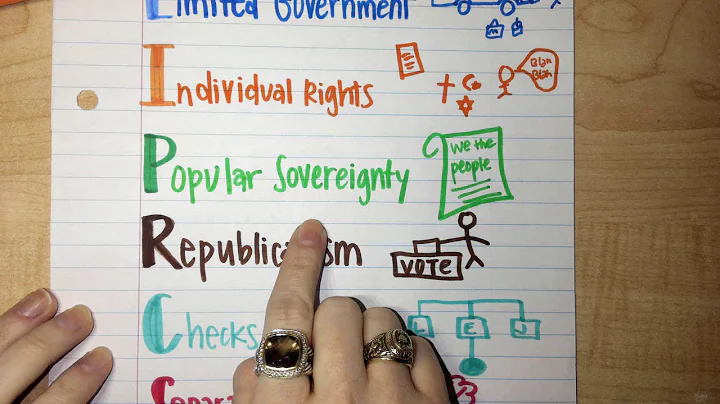 Limited Government
Individual Rights
Blah
Blah
Popular Sovereignty
We the
people
VOTE
Checks
L E J